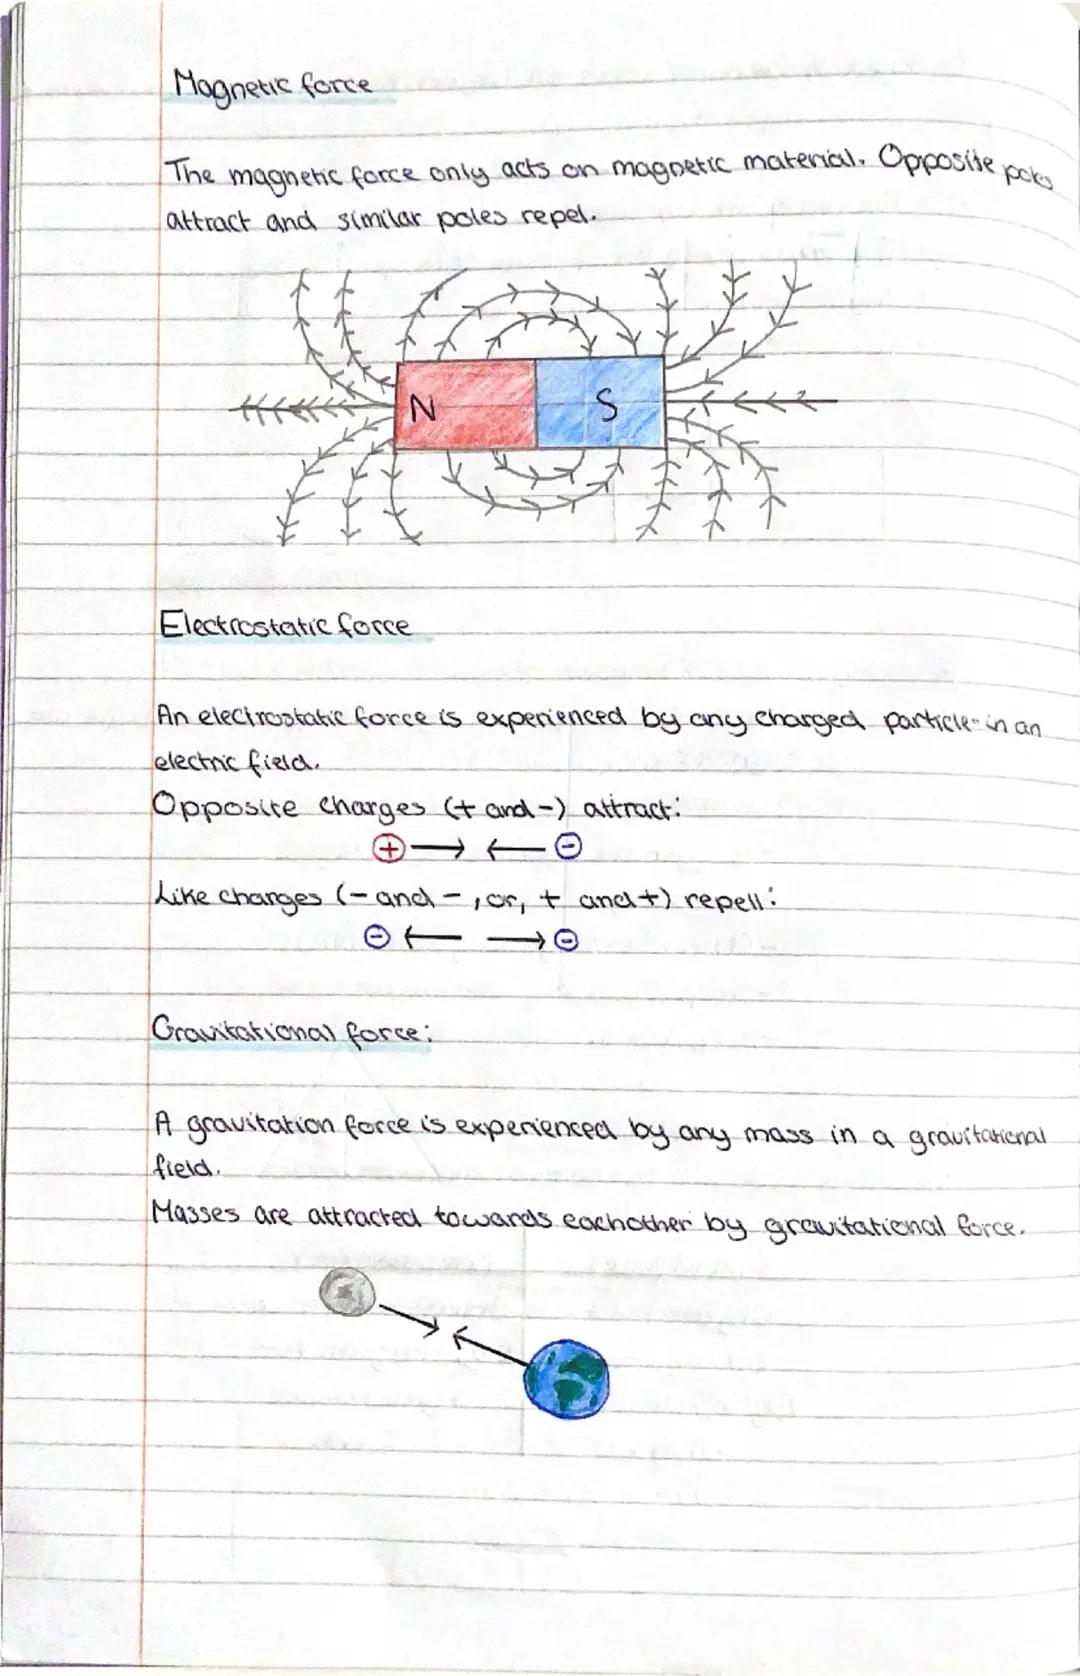 Magnetic force
The magnetic force only acts on magnetic material. Opposite poles
attract and similar poles repel.
N S
Electrostatic force
An electrostatic force is experienced by any charged particle in an
electric field.
Opposite charges (+ and -) attract:
+ → ← -
Like charges (- and -, or, + and +) repell:
- ← → -
Gravitational force:
A gravitation force is experienced by any mass in a gravitational
field.
Masses are attracted towards eachother by gravitational force.